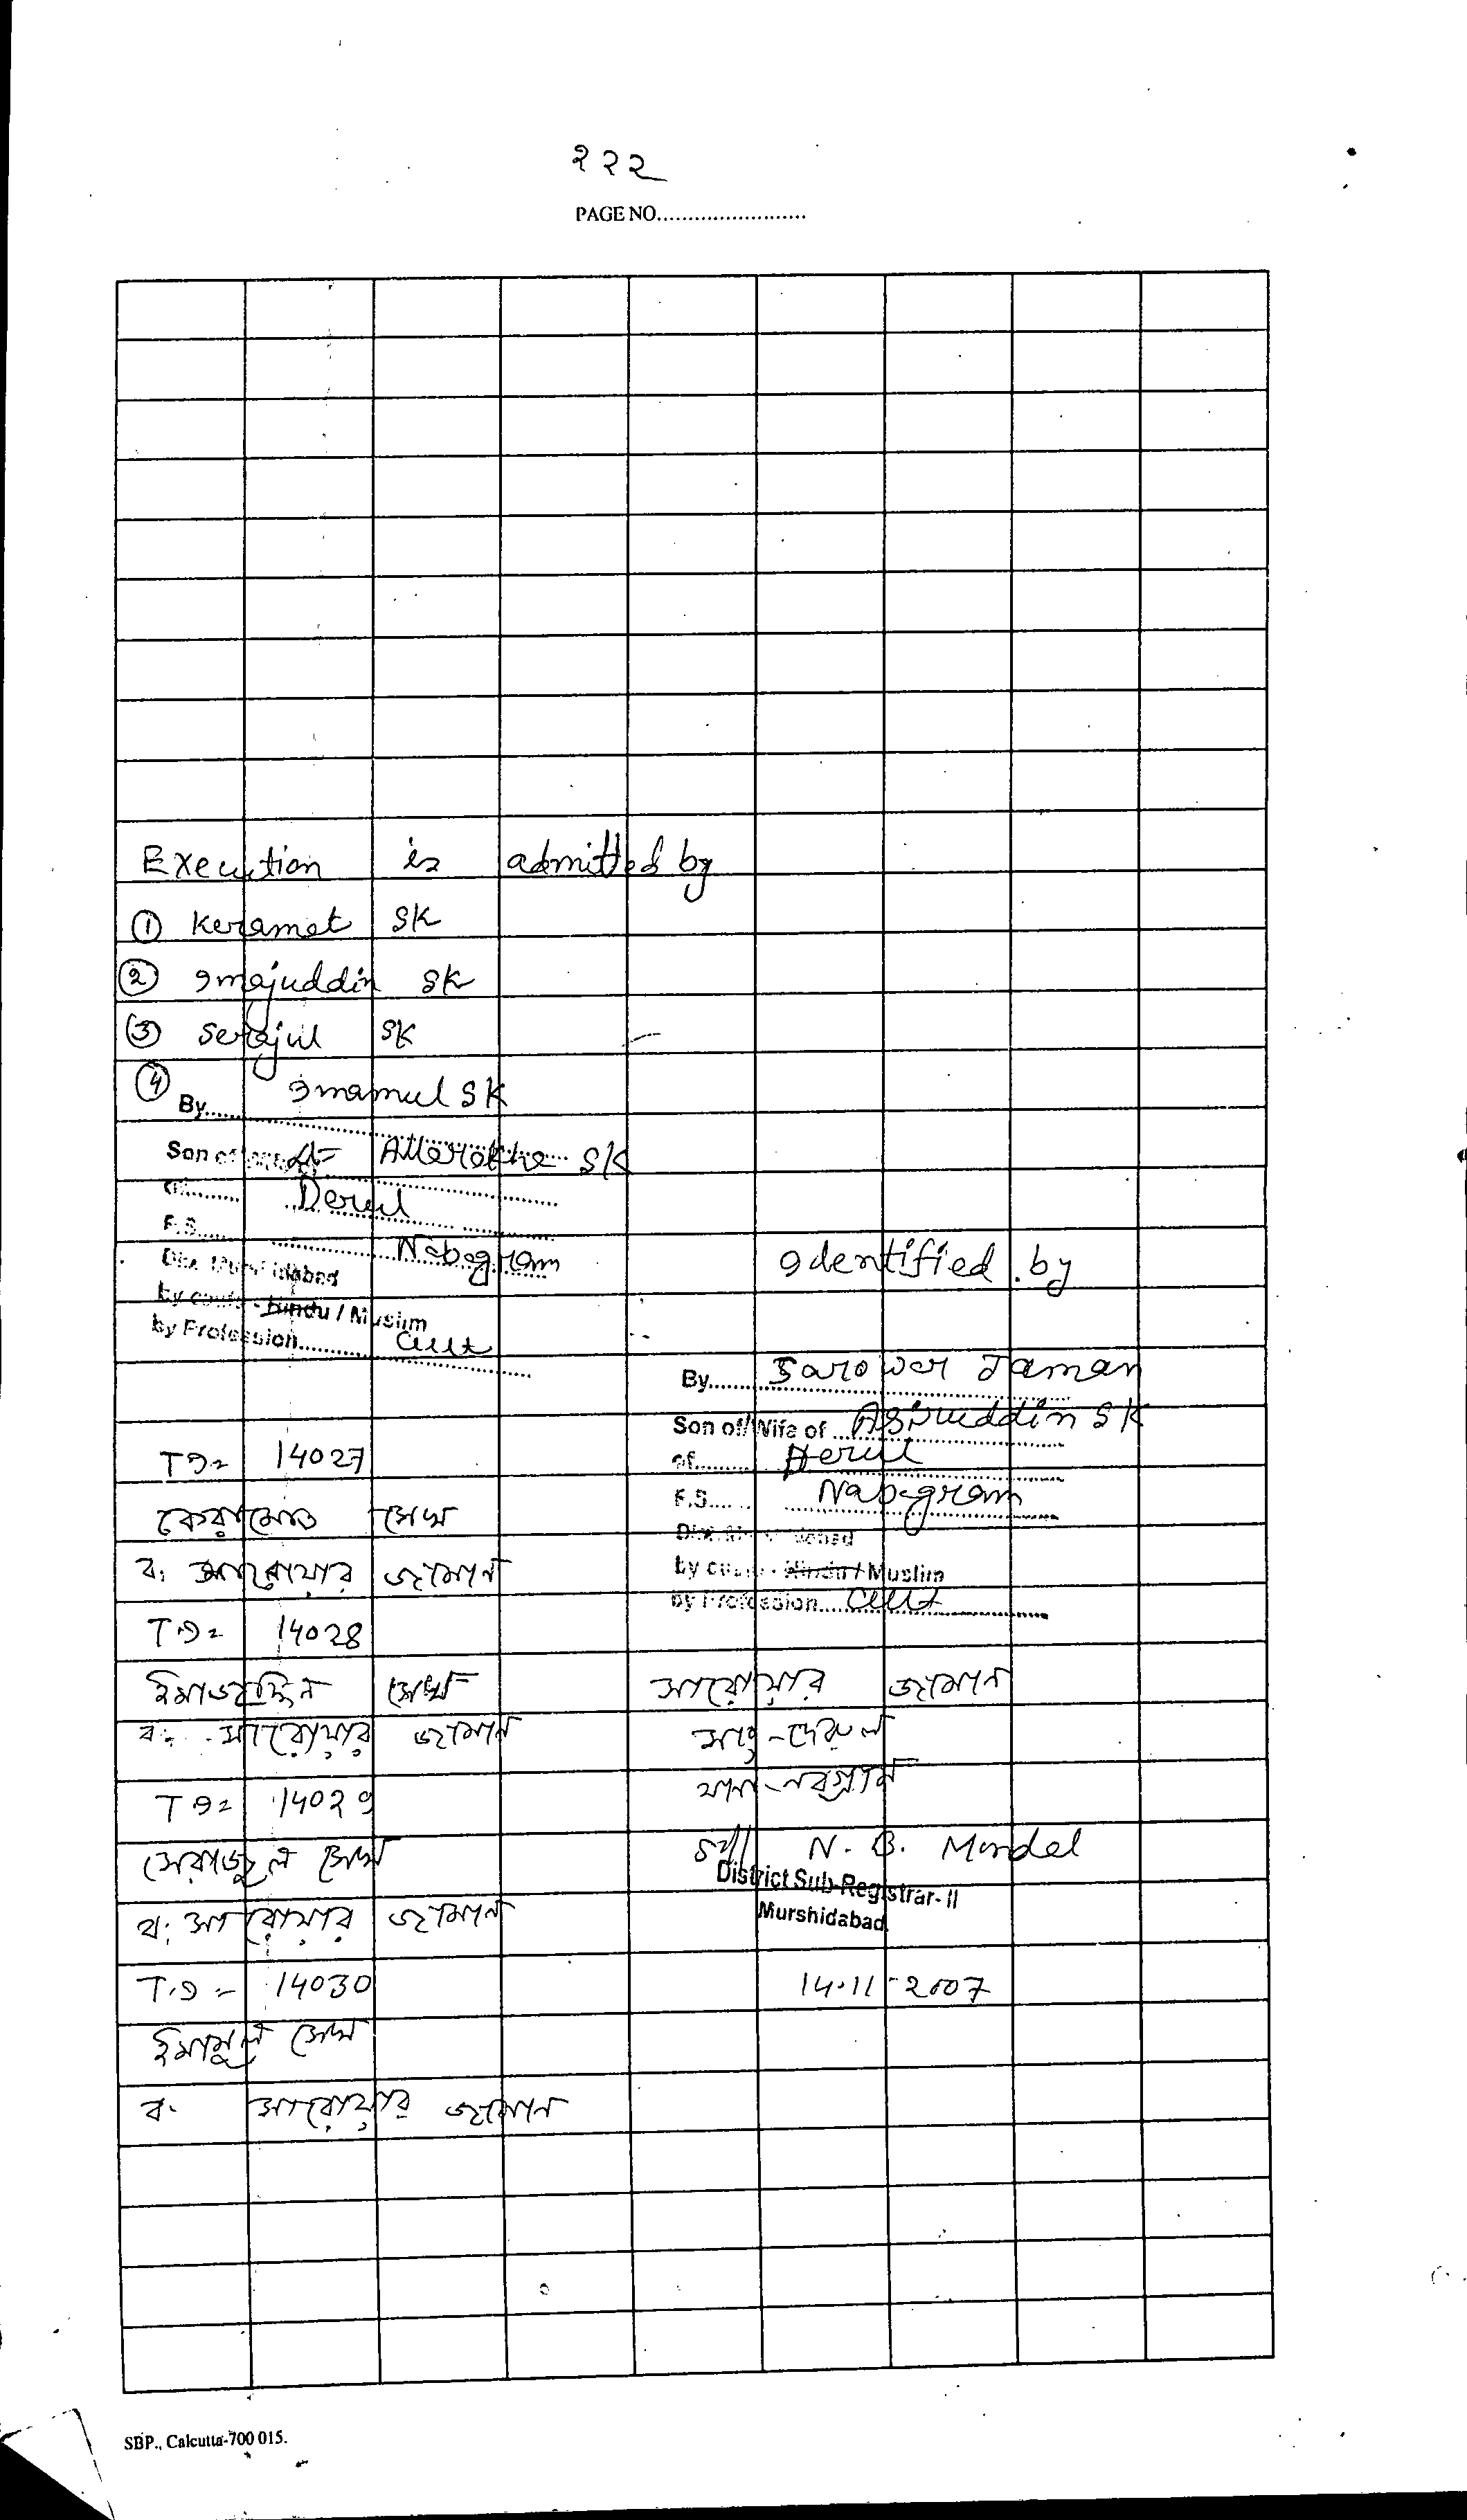 ২২২
PAGE NO........................
Execution is admitted by
① Keramet SK
② Imajuddin SK
③ Serajul SK
④ Imamul SK
By......
Son of Lt= Allarakha SK
of......... Derul
P.S...... Nabagram
Dist. Murshidabad
by caste - Hindu / Muslim
by Profession.......... Cult
TI= 14027
কেরামোত সেখ
ব: সারোয়ার জামান
TI= 14028
ইমাজুদ্দিন সেখ
ব: সারোয়ার জামান
TI= 14029
সেরাজুল সেখ
ব: সারোয়ার জামান
T.I = 14030
ইমামুল সেখ
ব: সারোয়ার জামান
Identified by
By........ Sarowar Jaman
Son of/Wife of Asiruddin SK
of........ Derul
P.S...... Nabagram
by caste - Hindu / Muslim
by Profession.... Cult
সারোয়ার জামান
সাং - দেরুল
থানা - নবগ্রাম
Sd/ N. B. Mondal
District Sub-Registrar- II
Murshidabad
14.11-2007
SBP., Calcutta-700 015.